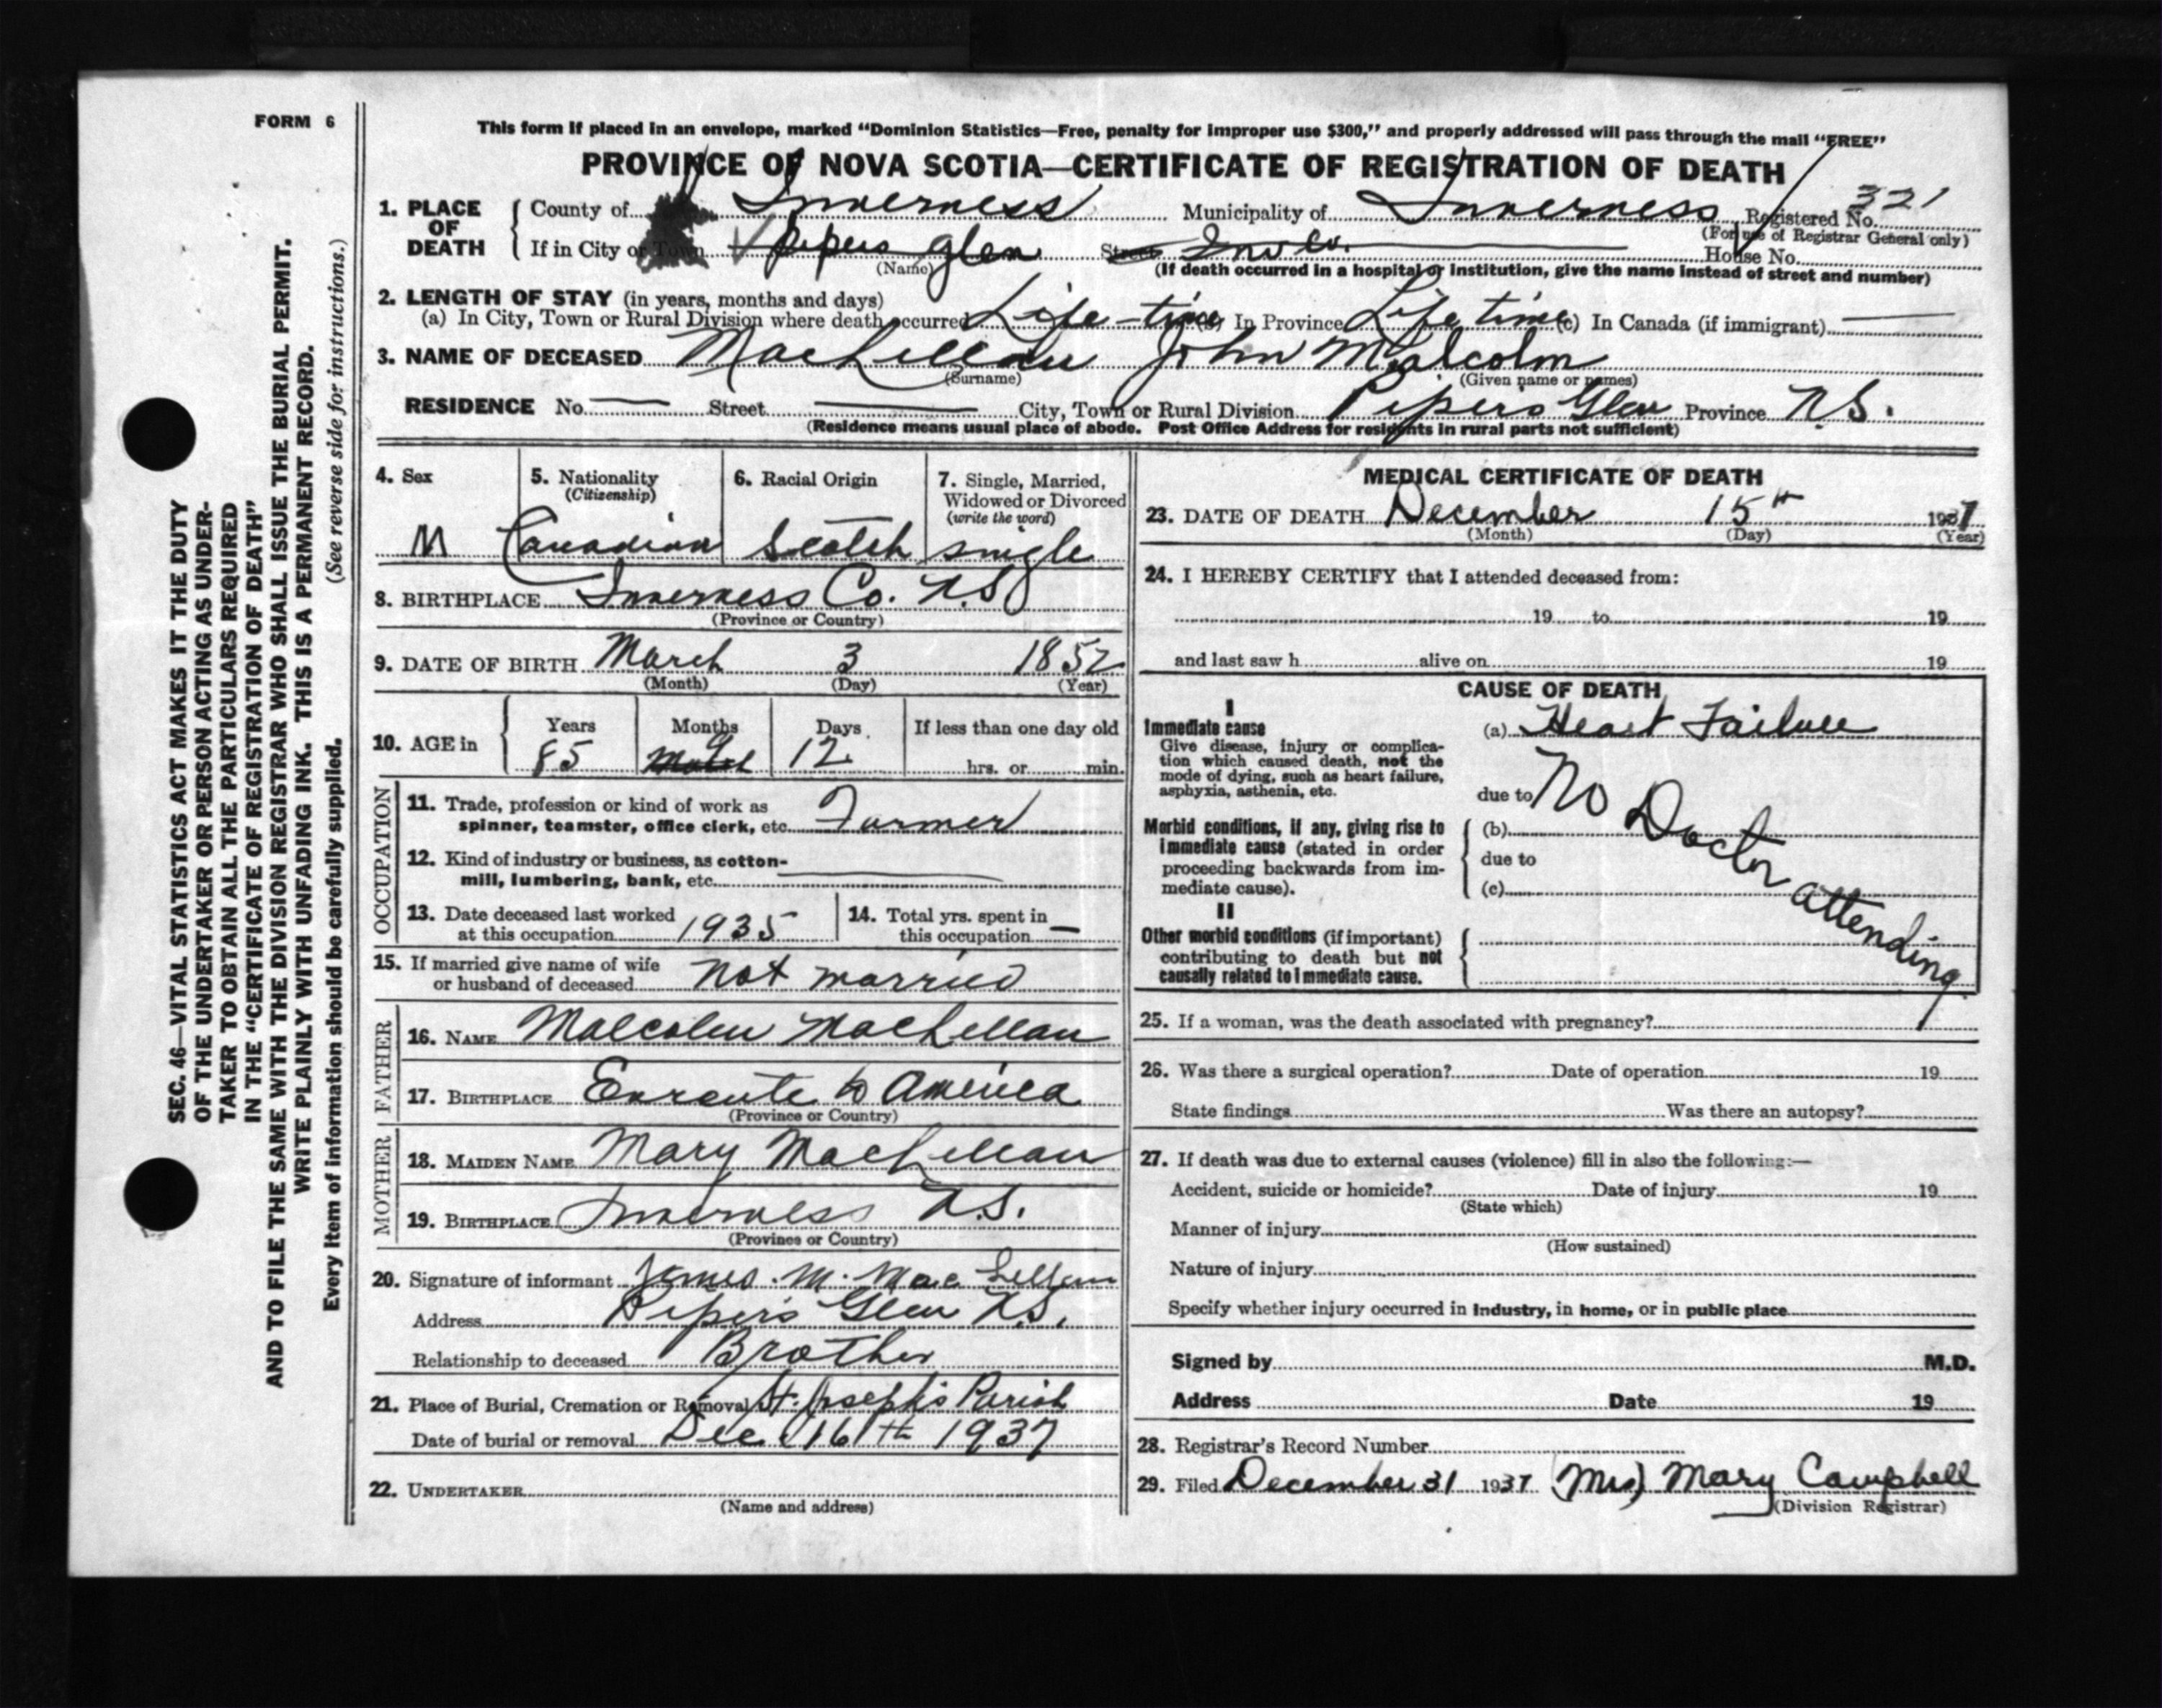 FORM 6
This form if placed in an envelope, marked "Dominion Statistics—Free, penalty for improper use $300," and properly addressed will pass through the mail "FREE"
PROVINCE OF NOVA SCOTIA—CERTIFICATE OF REGISTRATION OF DEATH
1. PLACE OF DEATH
County of Inverness Municipality of Inverness Registered No. 321
(For use of Registrar General only)
If in City or Town Pipers Glen Street Inv Co. House No.
(Name) (If death occurred in a hospital or institution, give the name instead of street and number)
2. LENGTH OF STAY (in years, months and days)
(a) In City, Town or Rural Division where death occurred Life-time (b) In Province Life time (c) In Canada (if immigrant) —
3. NAME OF DECEASED MacLellan John Malcolm
(Surname) (Given name or names)
RESIDENCE No. — Street — City, Town or Rural Division Piper's Glen Province N.S.
(Residence means usual place of abode. Post Office Address for residents in rural parts not sufficient)
4. Sex M
5. Nationality (Citizenship) Canadian
6. Racial Origin Scotch
7. Single, Married, Widowed or Divorced (write the word) single
8. BIRTHPLACE Inverness Co. N.S.
(Province or Country)
9. DATE OF BIRTH March 3 1852
(Month) (Day) (Year)
10. AGE in Years 85 Months 9 Days 12 If less than one day old
hrs. or min.
OCCUPATION
11. Trade, profession or kind of work as
spinner, teamster, office clerk, etc. Farmer
12. Kind of industry or business, as cotton-
mill, lumbering, bank, etc. —
13. Date deceased last worked
at this occupation 1935
14. Total yrs. spent in
this occupation —
15. If married give name of wife
or husband of deceased not married
FATHER
16. NAME Malcolm MacLellan
17. BIRTHPLACE Enroute to America
(Province or Country)
MOTHER
18. MAIDEN NAME Mary MacLellan
19. BIRTHPLACE Inverness N.S.
(Province or Country)
20. Signature of informant James. M. MacLellan
Address Piper's Glen N.S.
Relationship to deceased Brother
21. Place of Burial, Cremation or Removal St. Joseph's Parish
Date of burial or removal Dec 16th 1937
22. UNDERTAKER
(Name and address)
MEDICAL CERTIFICATE OF DEATH
23. DATE OF DEATH December 15th 1937
(Month) (Day) (Year)
24. I HEREBY CERTIFY that I attended deceased from:
19 to 19
and last saw h alive on 19
CAUSE OF DEATH
I
Immediate cause (a) Heart Failure
Give disease, injury or complica-
tion which caused death, not the
mode of dying, such as heart failure,
asphyxia, asthenia, etc.
due to No Doctor attending
Morbid conditions, if any, giving rise to (b)
immediate cause (stated in order due to
proceeding backwards from im-
mediate cause). (c)
II
Other morbid conditions (if important)
contributing to death but not
causally related to immediate cause.
25. If a woman, was the death associated with pregnancy?
26. Was there a surgical operation? Date of operation 19
State findings Was there an autopsy?
27. If death was due to external causes (violence) fill in also the following:—
Accident, suicide or homicide? Date of injury 19
(State which)
Manner of injury
(How sustained)
Nature of injury
Specify whether injury occurred in industry, in home, or in public place
Signed by M.D.
Address Date 19
28. Registrar's Record Number
29. Filed December 31 1937 (Mrs) Mary Campbell
(Division Registrar)
SEC. 46—VITAL STATISTICS ACT MAKES IT THE DUTY
OF THE UNDERTAKER OR PERSON ACTING AS UNDER-
TAKER TO OBTAIN ALL THE PARTICULARS REQUIRED
IN THE "CERTIFICATE OF REGISTRATION OF DEATH"
AND TO FILE THE SAME WITH THE DIVISION REGISTRAR WHO SHALL ISSUE THE BURIAL PERMIT.
WRITE PLAINLY WITH UNFADING INK. THIS IS A PERMANENT RECORD.
Every item of information should be carefully supplied. (See reverse side for instructions.)